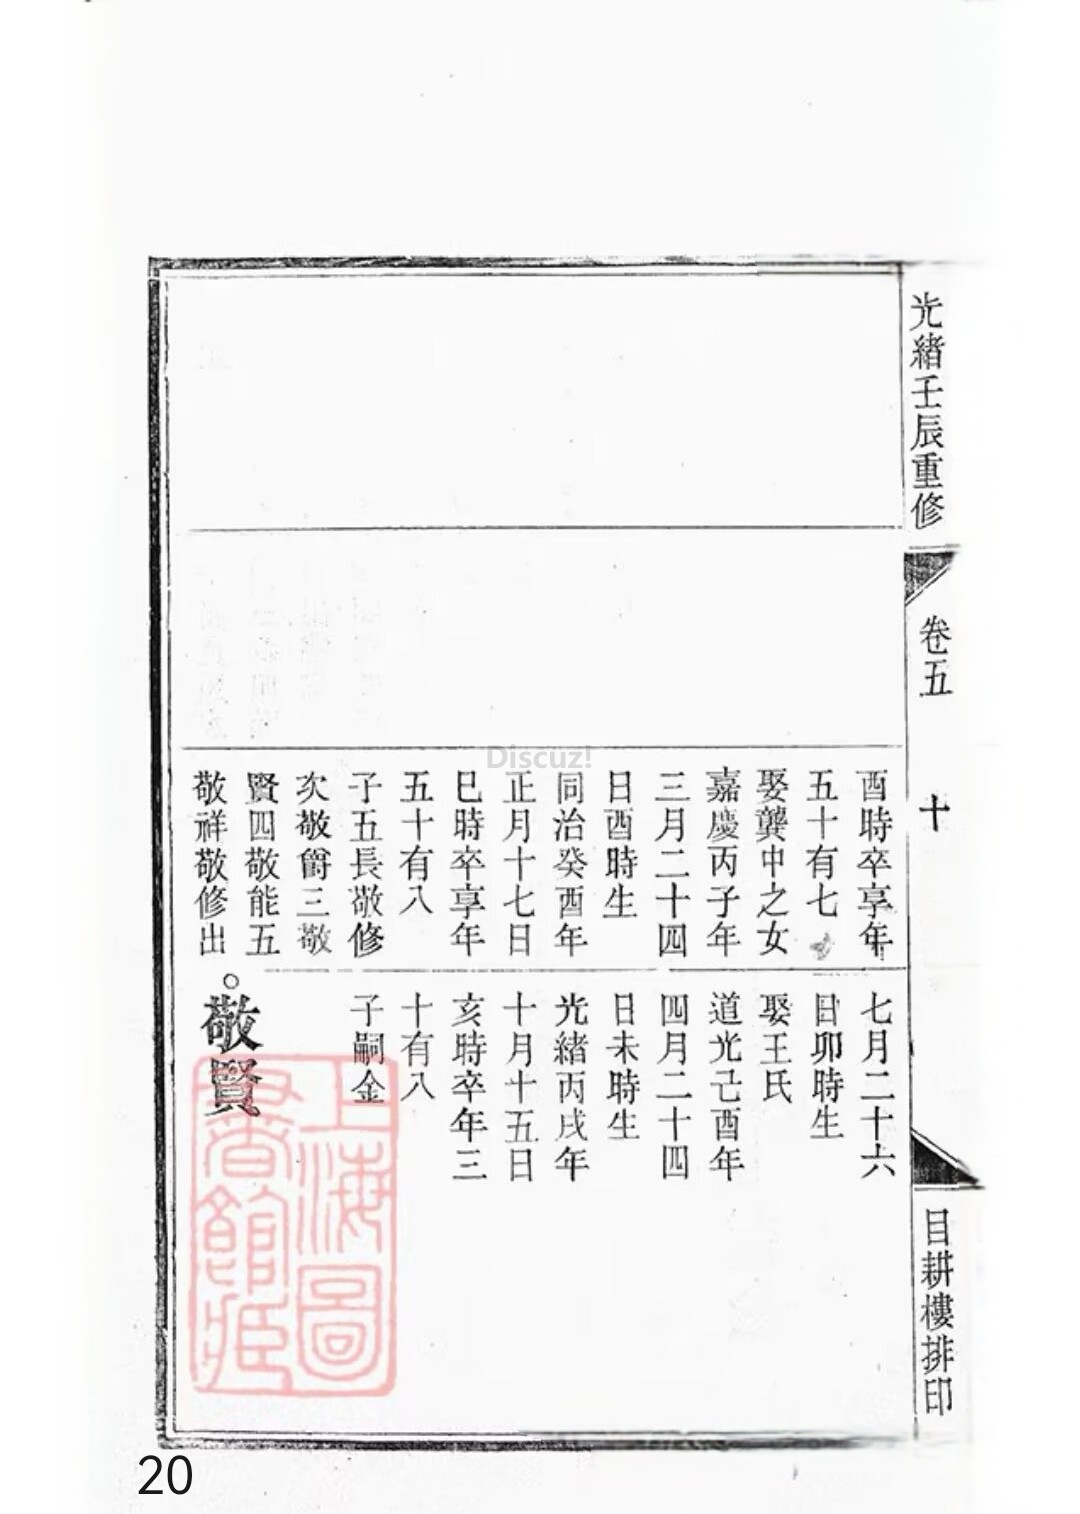 光緒壬辰重修
卷五
十
目耕樓排印
酉時卒享年
五十有七
娶龔中之女
嘉慶丙子年
三月二十四
日酉時生
同治癸酉年
正月十七日
巳時卒享年
五十有八
子五長敬修
次敬爵三敬
賢四敬能五
敬祥敬修出
七月二十六
日卯時生
娶王氏
道光己酉年
四月二十四
日未時生
光緒丙戌年
十月十五日
亥時卒年三
十有八
子嗣金
敬賢
上海圖
書館藏
Discuz!
20